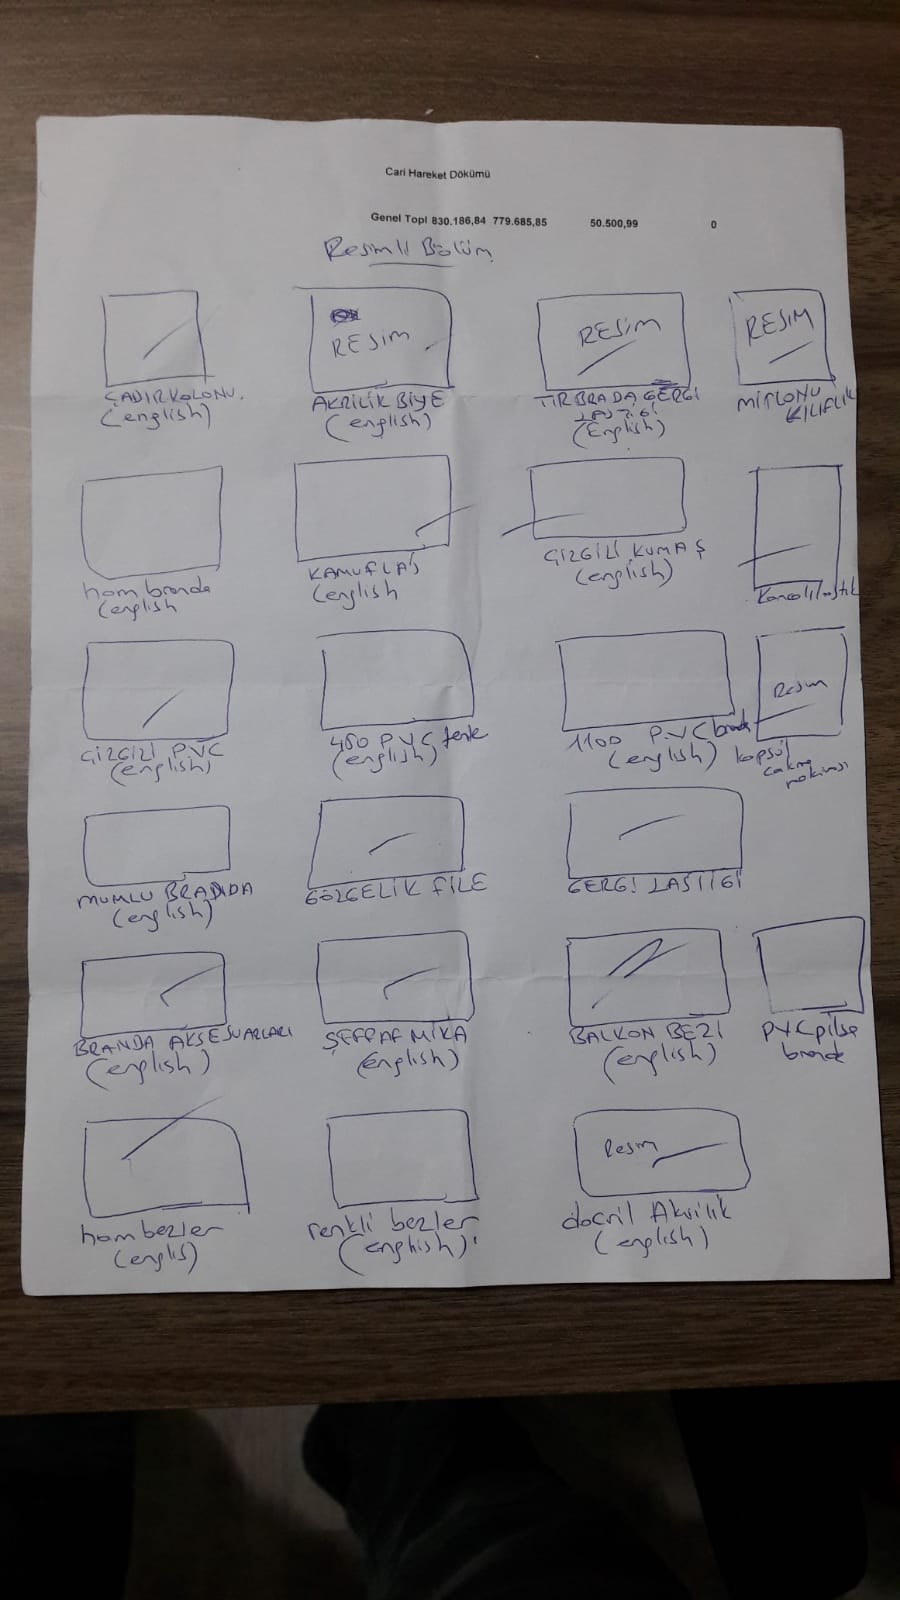 Cari Hareket Dökümü
Genel Topl 830.186,84 779.685,85 50.500,99 0
Resimli Bölüm
RESİM
RESİM
RESİM
ÇADIR KOLONU.
(english)
AKRİLİK BİYE
(english)
TIR BRADA GERGİ
LASTİĞİ
(English)
MİFLONU
KILIFLIK
ham branda
(english
KAMUFLAJ
(english
ÇİZGİLİ KUMAŞ
(english)
Resim
ÇİZGİZİ PVC
(english)
450 PVC tente
(english)
1100 PVC branda
(english)
kapsül
çakma
makinası
MUMLU BRANDA
(english)
GÖZGELİK FİLE
GERGİ LASTİĞİ
BRANDA AKSESUARLARI
(english)
ŞEFFAF MİKA
(english)
BALKON BEZİ
(english)
PVC pilse
brande
Resim
ham bezler
(englis)
renkli bezler
(enghish)
docril Akrilik
(english)